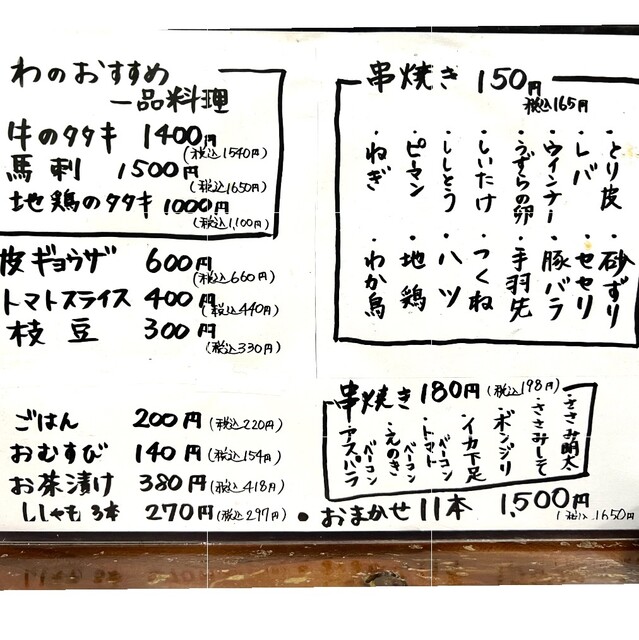 わのおすすめ
一品料理
牛のタタキ 1400円
(税込1540円)
馬刺 1500円
(税込1650円)
地鶏のタタキ 1000円
(税込1,100円)
皮ギョウザ 600円
(税込660円)
トマトスライス 400円
(税込440円)
枝豆 300円
(税込330円)
ごはん 200円(税込220円)
おむすび 140円(税込154円)
お茶漬け 380円(税込418円)
ししゃも3本 270円(税込297円)
串焼き 150円
税込165円
・とり皮
・レバ
・ウインナー
・うずらの卵
・しいたけ
・ししとう
・ピーマン
・ねぎ
・砂ずり
・セセリ
・豚バラ
・手羽先
・つくね
・ハツ
・地鶏
・わか鳥
串焼き 180円(税込198円)
・ささみ明太
・ささみしそ
・ボンジリ
・イカ下足
・トマトベーコン
・えのきベーコン
・アスパラベーコン
・おまかせ11本 1,500円
(税込1650円)